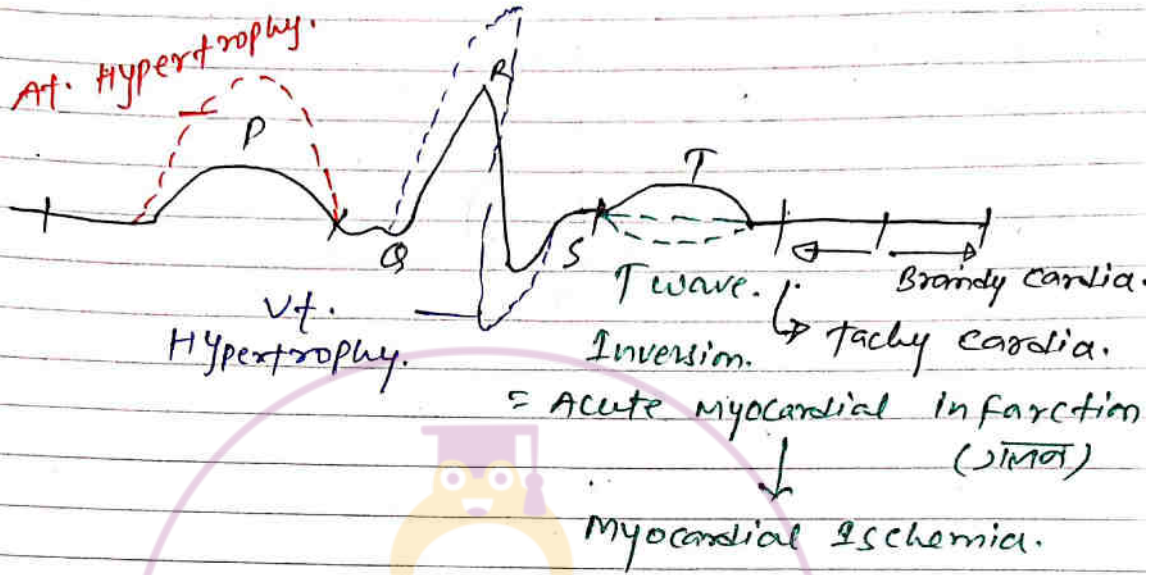 At. Hypertrophy.
P
R
Q
S
T
Vt.
Hypertrophy.
T wave.
Inversion.
Braindy cardia.
Tachy cardia.
= Acute myocardial infarction
(गलन)
Myocardial Ischemia.